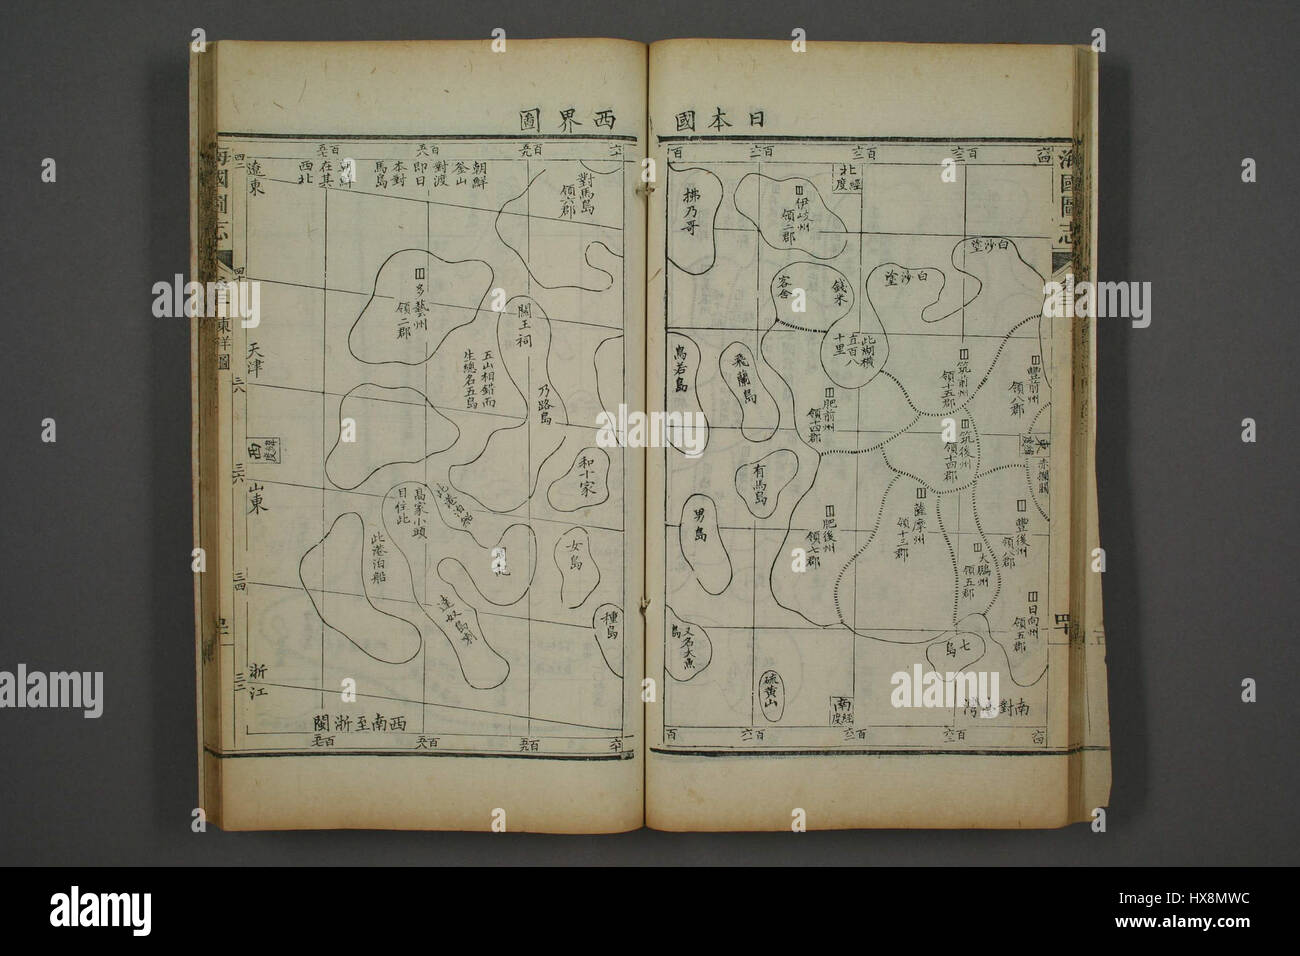 日本國
西界圖
海國圖志
北
經度
百六三
百六二
拂乃哥
伊岐州
領二郡
客舍
錢米
白沙塗
白沙塗
此湖橫
五百八
十里
烏若島
飛蘭島
肥前州
領十四郡
筑前州
領十五郡
豐前州
領八郡
筑後州
領十四郡
東
赤攔關
有馬島
男島
肥後州
領七郡
薩摩州
領十三郡
豐後州
領八郡
大鵬州
領五郡
日向州
領五郡
七島
又名大魚
島
硫黃山
南
經度
南對
朝鮮
釜山
對渡
即日
本對
馬島
朝鮮
在其
西北
遼東
對馬島
領六郡
多藝州
領二郡
關王祠
五山相錯而
生總名五島
乃路島
和十家
天津
西
緯度
山東
高家小頭
目住此
此港泊船
此港泊船
女島
種島
浙江
西南至浙閩
海國圖志
東洋圖
alamy
Image ID: HX8MWC
www.alamy.com